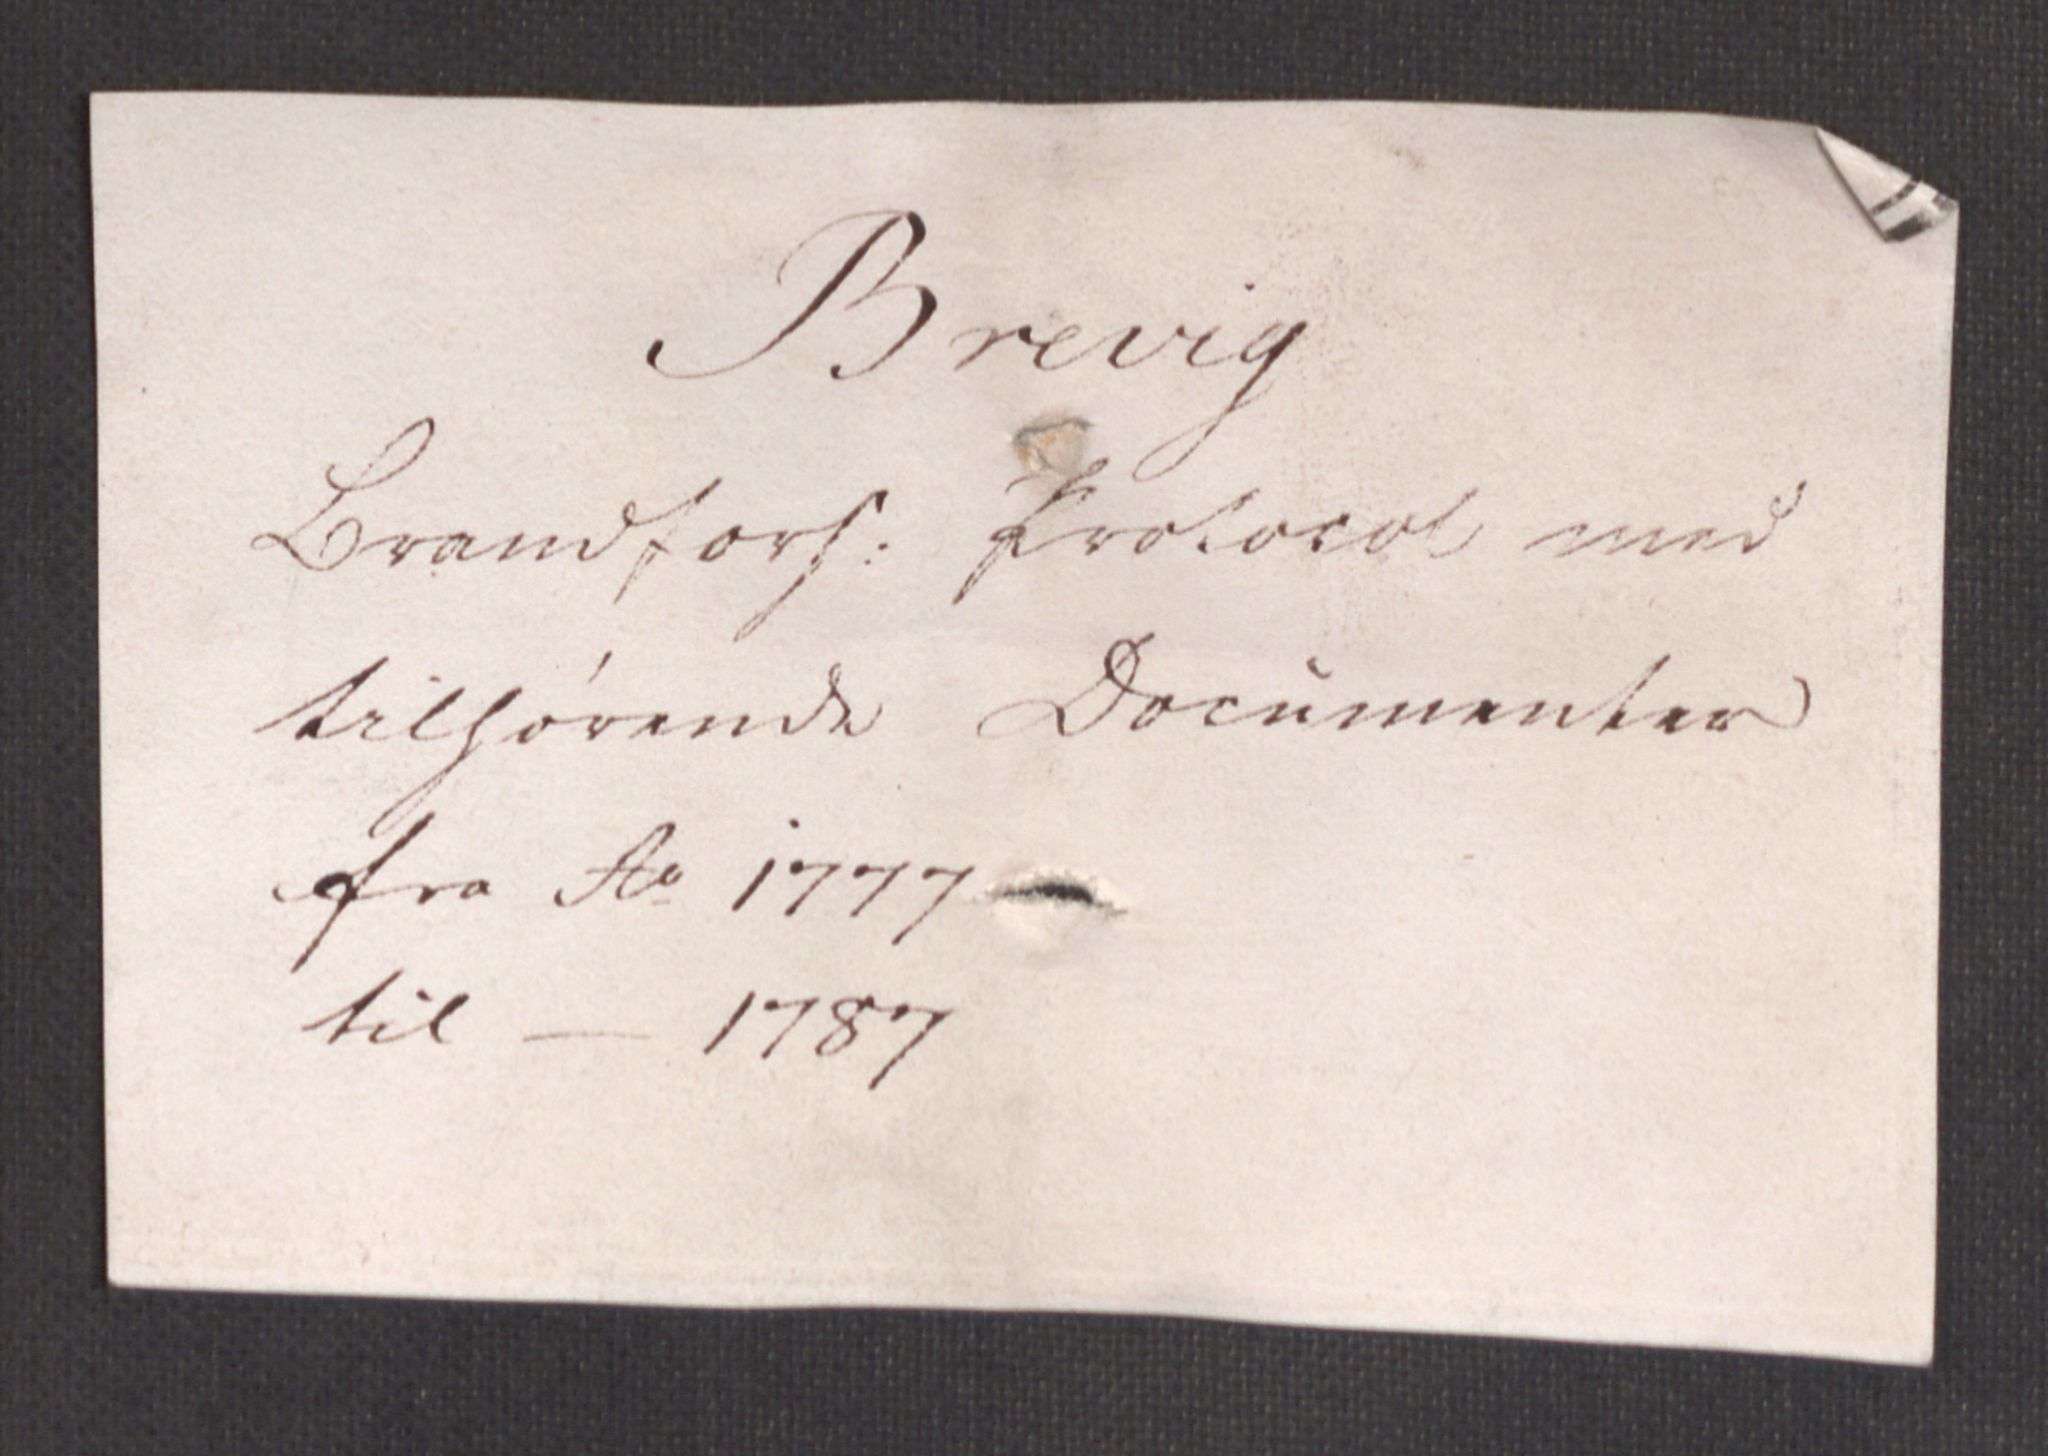 Brevig
Brandfors: Protocol med
tilhørende Documenter
fra Ao 1777
til — 1787